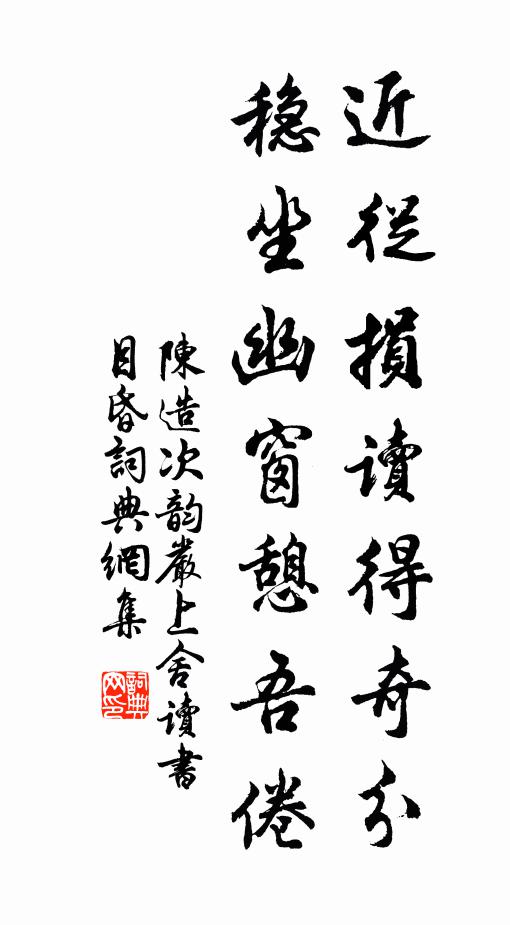 近從損讀得奇分
穩坐幽窗憩吾倦
陳造次韵嚴上舍讀書
目昏詞典網集
詞典
网印